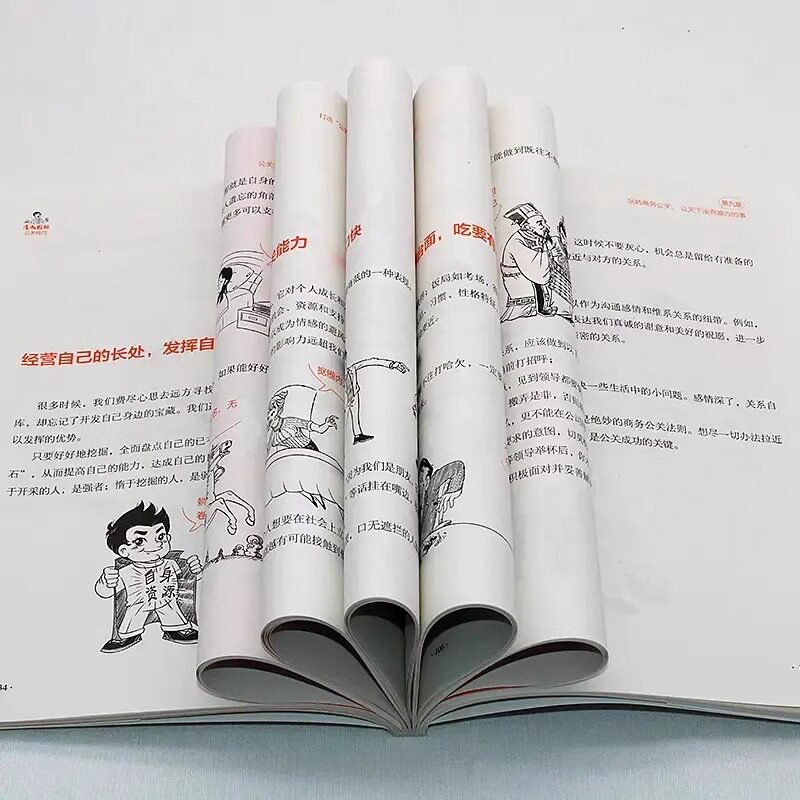 漫画图解
公关技巧
经营自己的长处，发挥自
很多时候，我们费尽心思去远方寻找
库，却忘记了开发自己身边的宝藏。我们
以发挥的优势。
只要好好地挖掘，全面盘点自己的
石”，从而提高自己的能力，达成自己的
于开采的人，是强者；惰于挖掘的人，是
自身
资源
就是自身的
人遗忘的角
更多可以支
如果能好好
无
打造“公
能力
它对个人成长
机会、资源和支
成为情感的避风
的影响力远超我
据圈内
人想要在社会上
越有可能接触到
快
低的一种表现
因为我们是朋友
等话挂在嘴边
，口无遮拦的人
面，吃要有
：饭局如考场，
、习惯、性格特征
住打哈欠，一定
·106·
能做到既往不
系，应该做到
前打招呼；
，见到领导都
搬弄是非，否
，更不能在公
求的意图，切
领导举杯后，你
积极面对并妥善解
玩转商务公关，让天下没有难办的事
第九章
这时候不要灰心，机会总是留给有准备的
近与对方的关系。
以作为沟通感情和维系关系的纽带。例如，
表达我们真诚的谢意和美好的祝愿，进一步
密的关系。
决一些生活中的小问题。感情深了，关系自
是绝妙的商务公关法则。想尽一切办法拉近
是公关成功的关键。